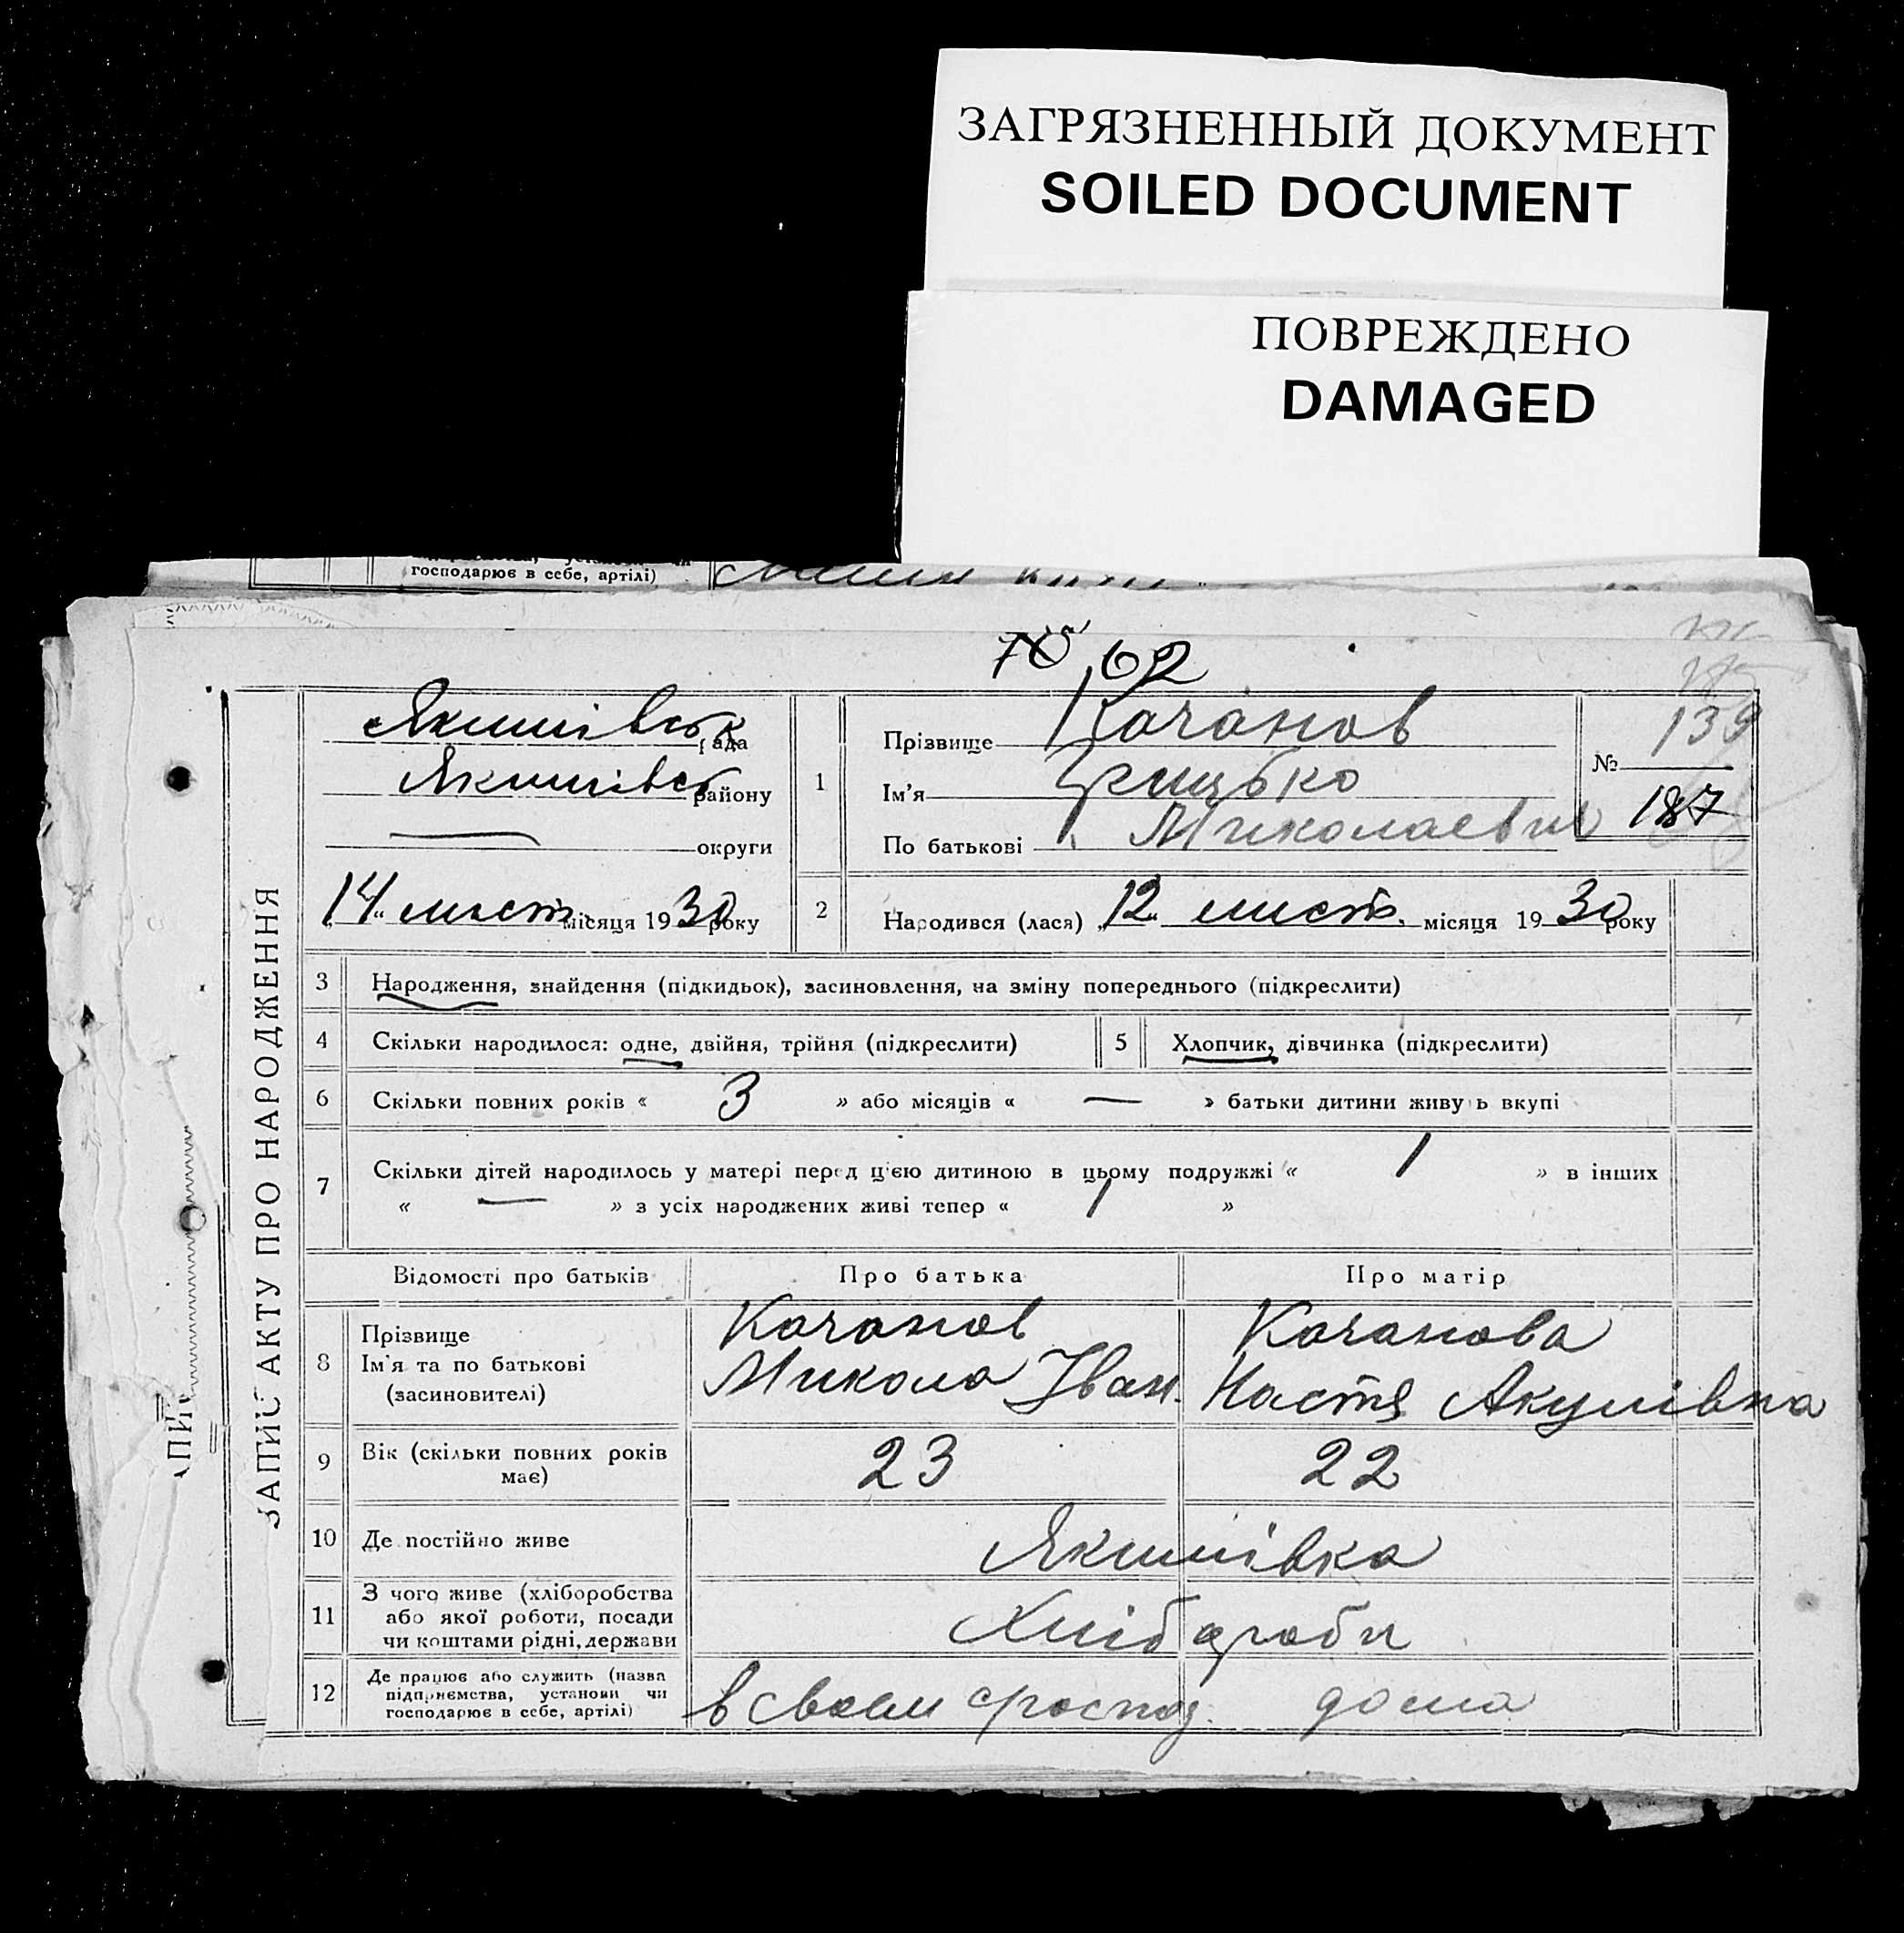 ЗАГРЯЗНЕННЫЙ ДОКУМЕНТ
SOILED DOCUMENT
ПОВРЕЖДЕНО
DAMAGED
господарює в себе, артілі)
62
ЗАПИС АКТУ ПРО НАРОДЖЕННЯ
Якимівськ рада
Якимівськ району
— округи
„14“ лист. місяця 1930 року
1
Прізвище Качанов
Ім'я Грицько
По батькові Миколаевич
№ 139
187
2 Народився (лася) „12“ лист. місяця 1930 року
3 Народження, знайдення (підкидьок), засиновлення, на зміну попереднього (підкреслити)
4 Скільки народилося: одне, двійня, трійня (підкреслити) 5 Хлопчик, дівчинка (підкреслити)
6 Скільки повних років « 3 » або місяців « — » батьки дитини живуть вкупі
7 Скільки дітей народилось у матері перед цією дитиною в цьому подружжі « 1 » в інших
« — » з усіх народжених живі тепер « 1 »
Відомості про батьків Про батька Про матір
8 Прізвище
Ім'я та по батькові
(засиновителі)
Качанов
Микола Іван.
Качанова
Настя Акулівна
9 Вік (скільки повних років
має)
23 22
10 Де постійно живе Якимівка
11 З чого живе (хліборобства
або якої роботи, посади
чи коштами рідні, держави
Хлібороби
12 Де працює або служить (назва
підприємства, установи чи
господарює в себе, артілі)
в своем господ. дома